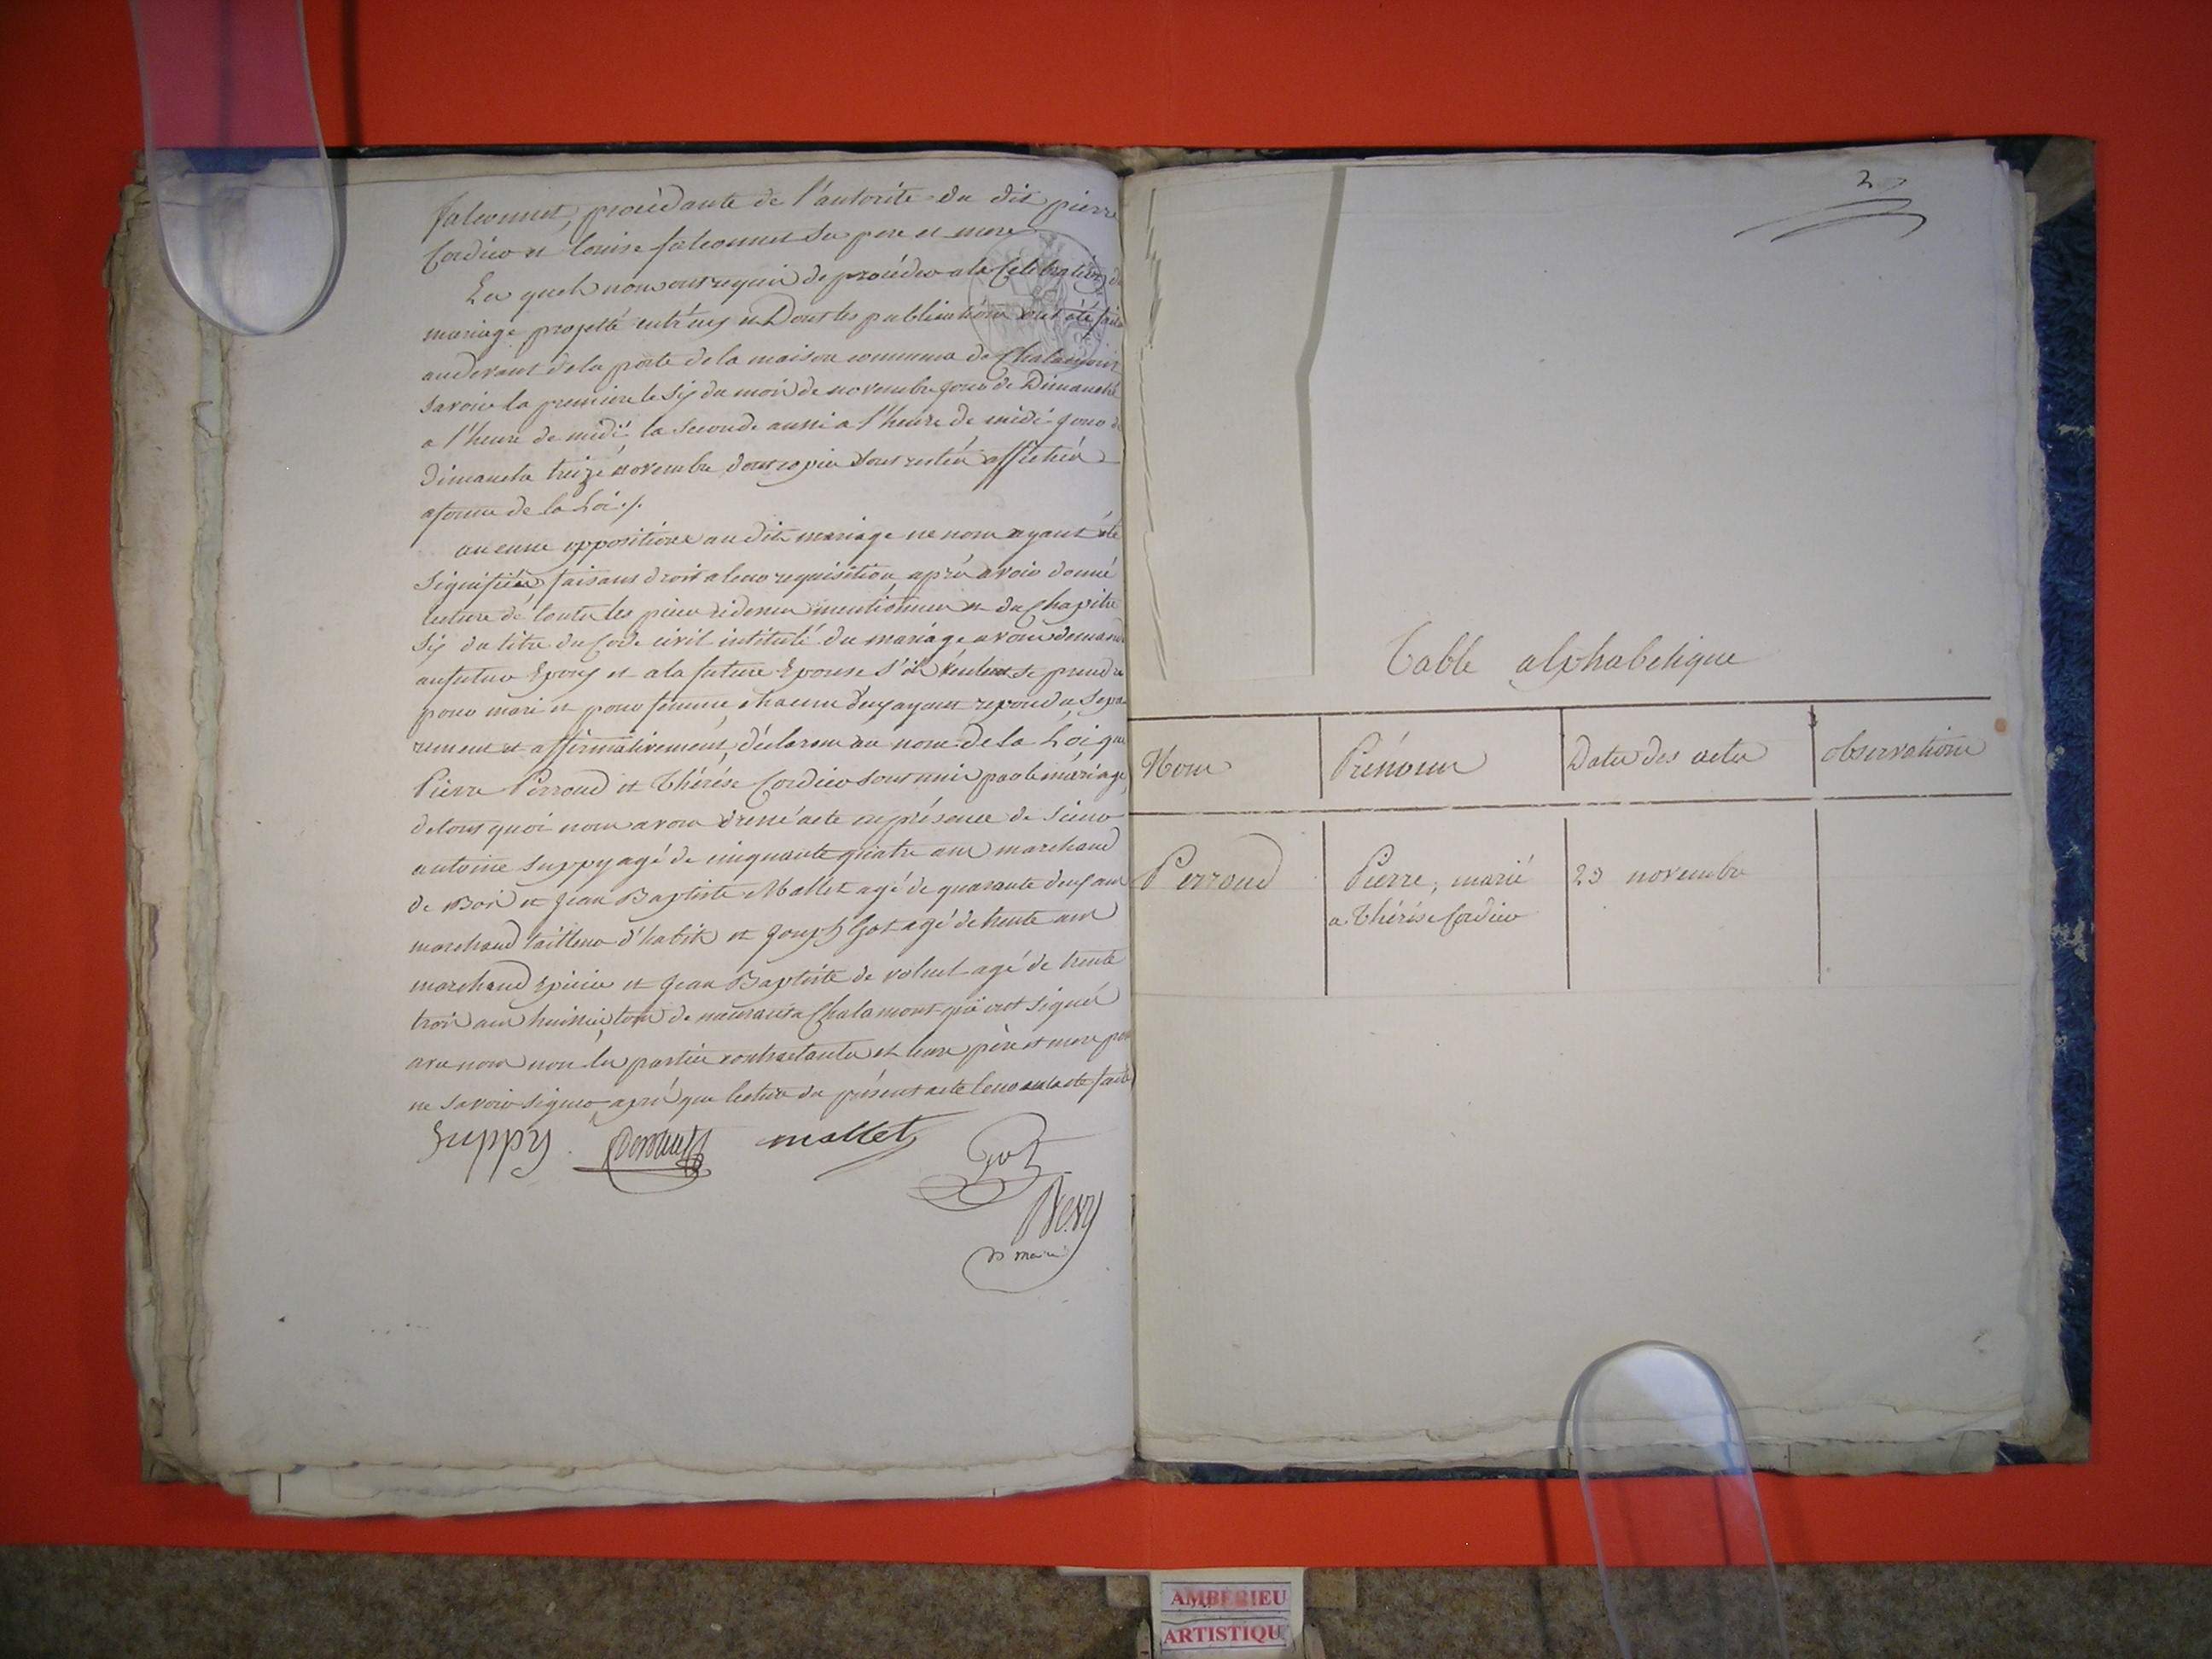 falconnet, procédante de l'autorité du dit pierre
Cordier et Louise falconnet ses pere et mere
Les quels nous ont requis de procéder a la Célébration du
mariage projetté entr'eux et Dont les publications ont été faites
audevant de la porte de la maison commune de Chalamont
Savoir la premiere le Six du mois de novembre jour de Dimanche
a l'heure de midi, la Seconde aussi a l'heure de midi jour de
Dimanche treize novembre dont copies sont restées affichées
a forme de la Loi ./.
aucune opposition au dit mariage ne nous ayant été
Signifiée, faisant droit a leur requisition, après avoir donné
lecture de toutes les pieces cidessus mentionnées et du Chapitre
Six du titre du Code civil intitulé du mariage avons demandé
au futur Epoux et a la future Epouse s'ils veulent se prendre
pour mari et pour femme, chacun d'eux ayant repondu Sepa-
rement et affirmativement, déclarons au nom de la Loi que
Pierre Perroud et Thérése Cordier sont unis par le mariage,
de tout quoi nous avons dressé acte en présence de Sieurs
antoine Suppy agé de cinquante quatre ans marchand
de Bois et Jean Baptiste Mallet agé de quarante deux ans
marchand tailleur d'habits et Joseph Got agé de trente ans
marchand Epicier et Jean Baptiste de agé de trente
trois ans huissier, tous demeurants a Chalamont qui ont Signés
avec nous non les parties contractantes et leurs père et mere pour
ne Savoir Signer, après que lecture du présent acte leur a été faite
Suppy mallet Got
Bery
maire
2
Table alphabetique
Noms Prénoms Dates des actes observations
Perroud Pierre, marié 23 novembre
a Thérése Cordier
AMBERIEU
ARTISTIQU